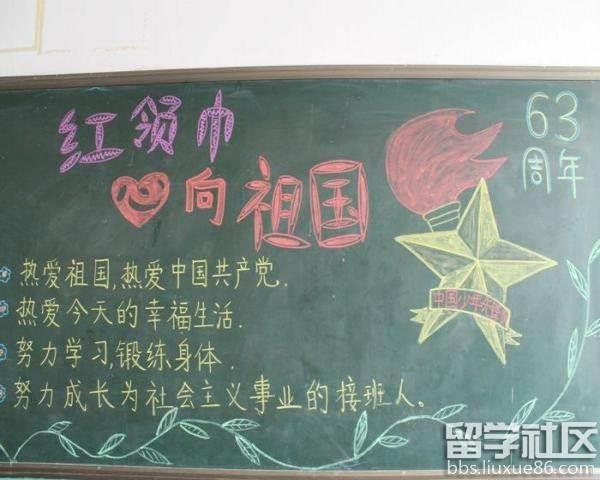 红领巾
心向祖国
63
周年
中国少年先锋队
热爱祖国,热爱中国共产党.
热爱今天的幸福生活.
努力学习,锻练身体.
努力成长为社会主义事业的接班人。
留学社区
bbs.liuxue86.com